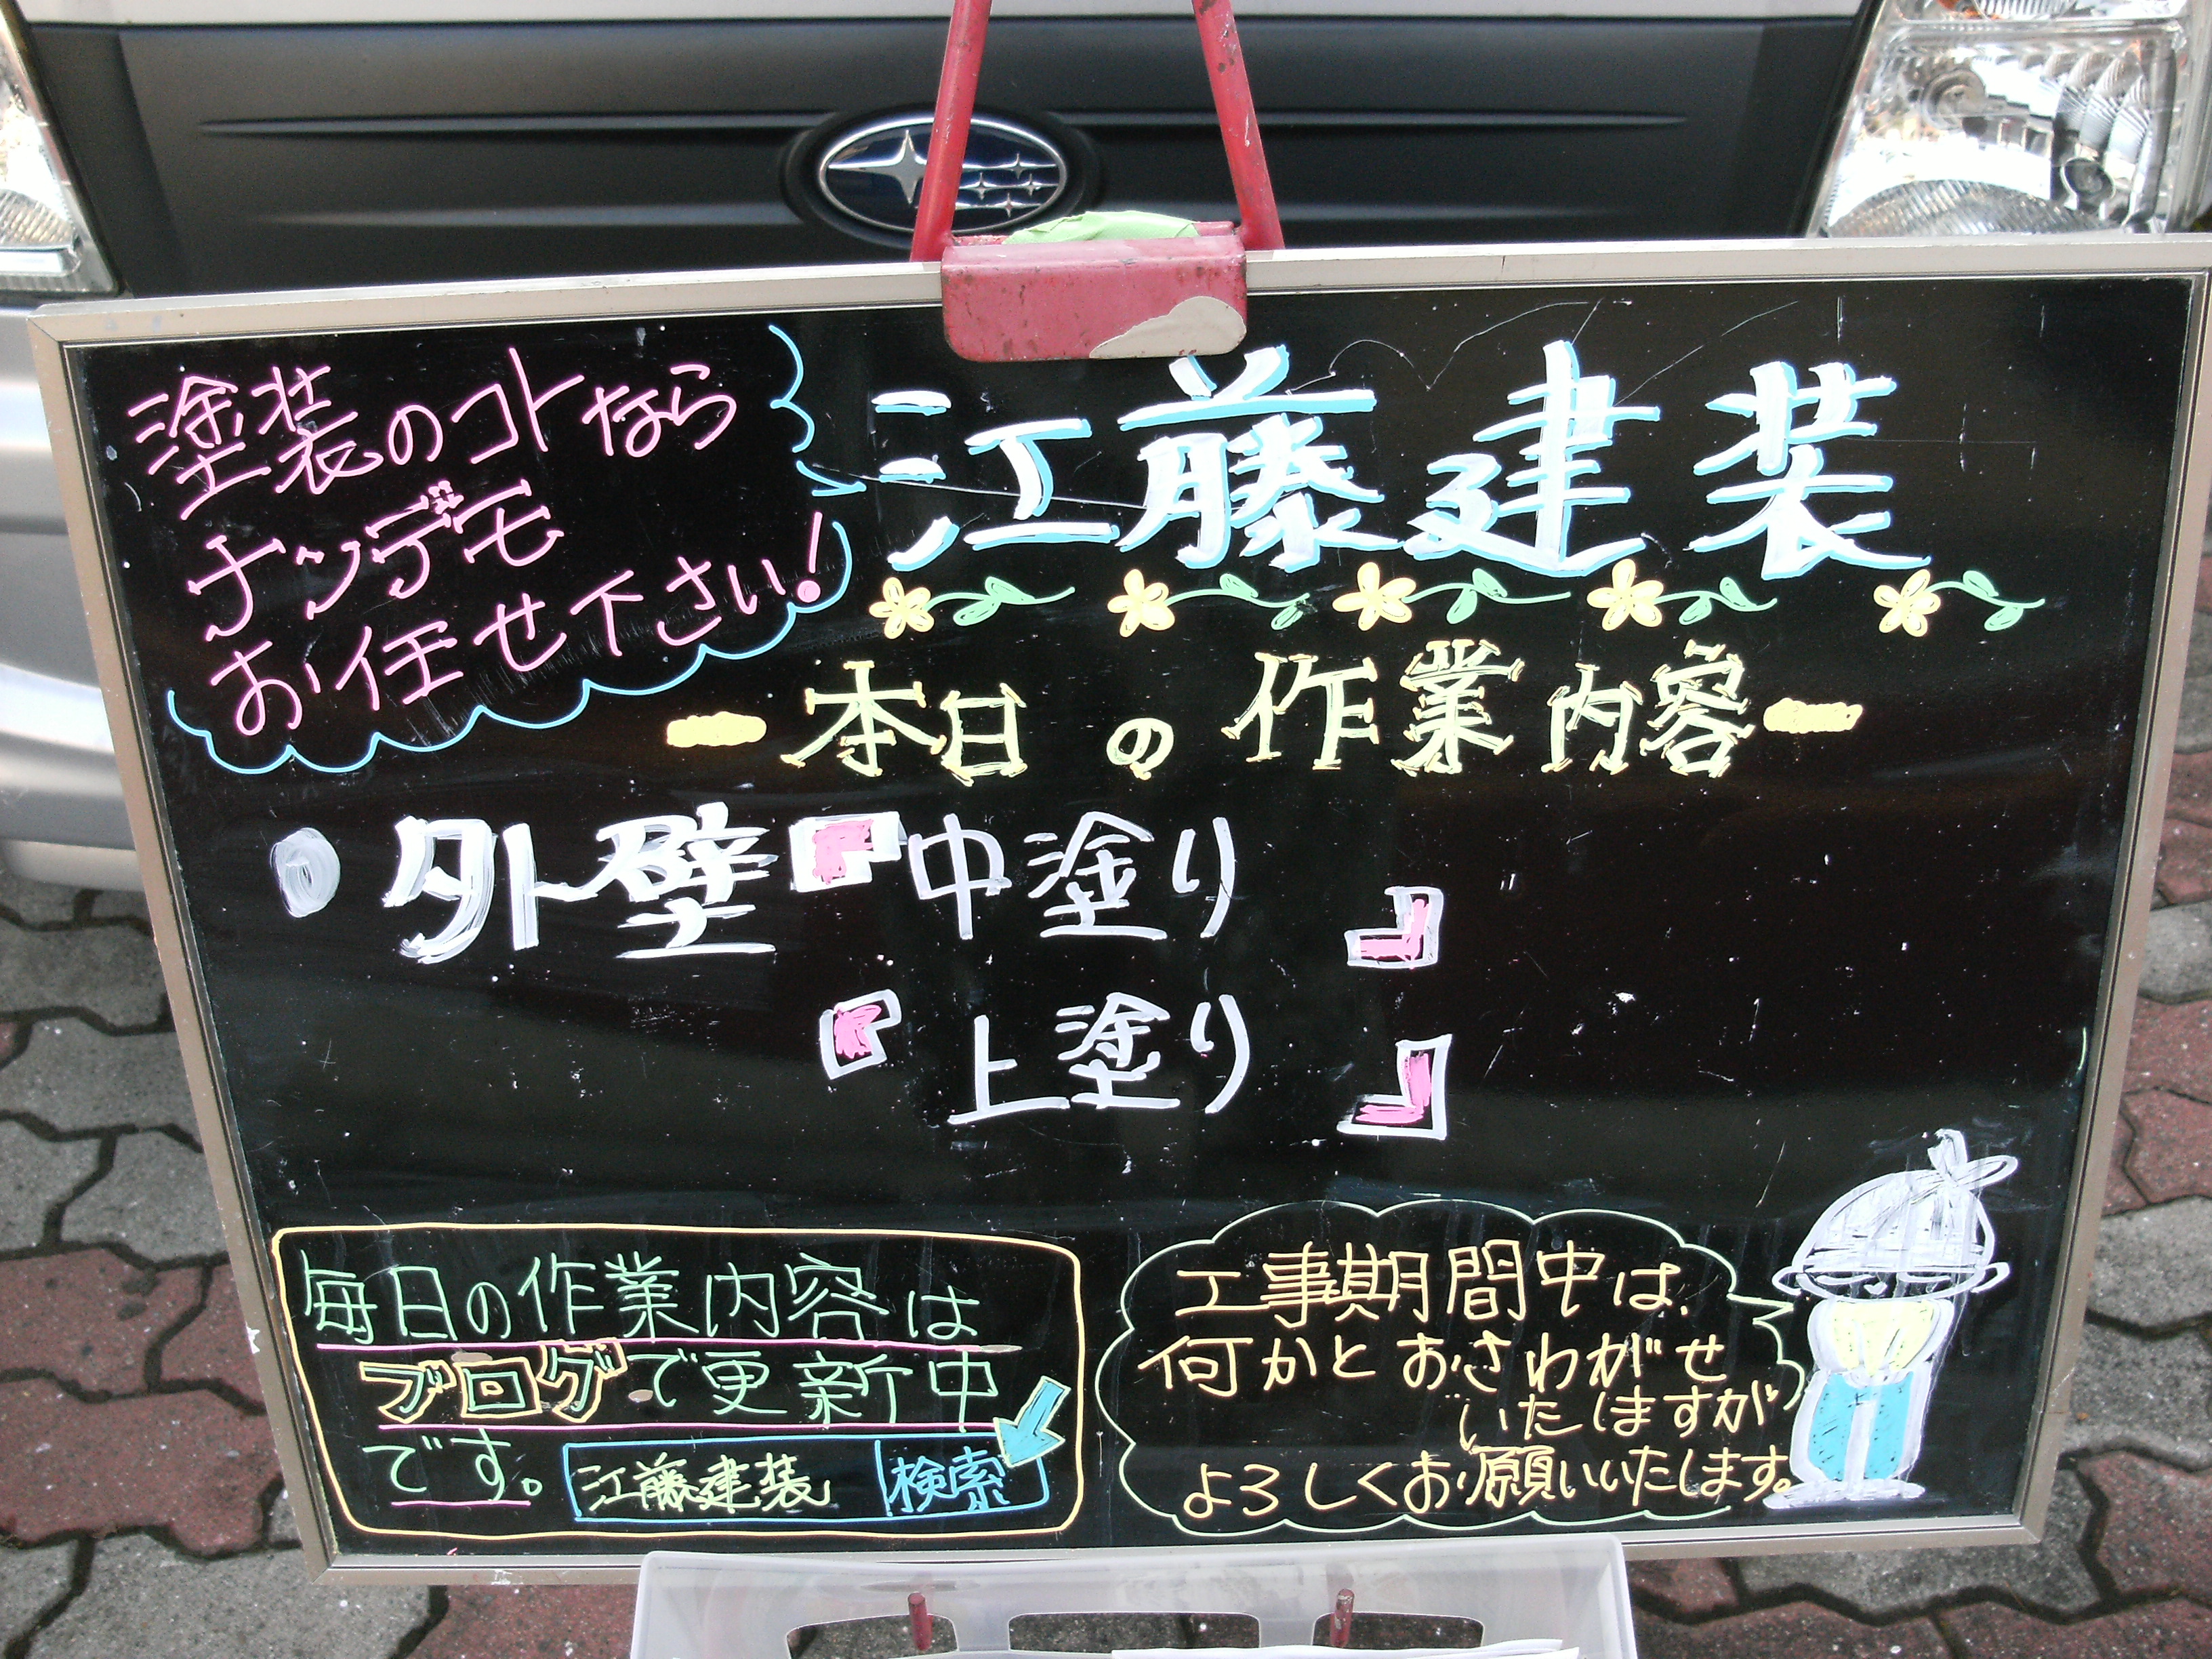 塗装のコトなら
ナンデモ
お任せ下さい!
江藤建装
ー本日の作業内容ー
● 外壁『中塗り』
『上塗り』
毎日の作業内容は
ブログで更新中
です。 江藤建装 検索
工事期間中は、
何かとおさわがせ
いたしますが
よろしくお願いいたします。